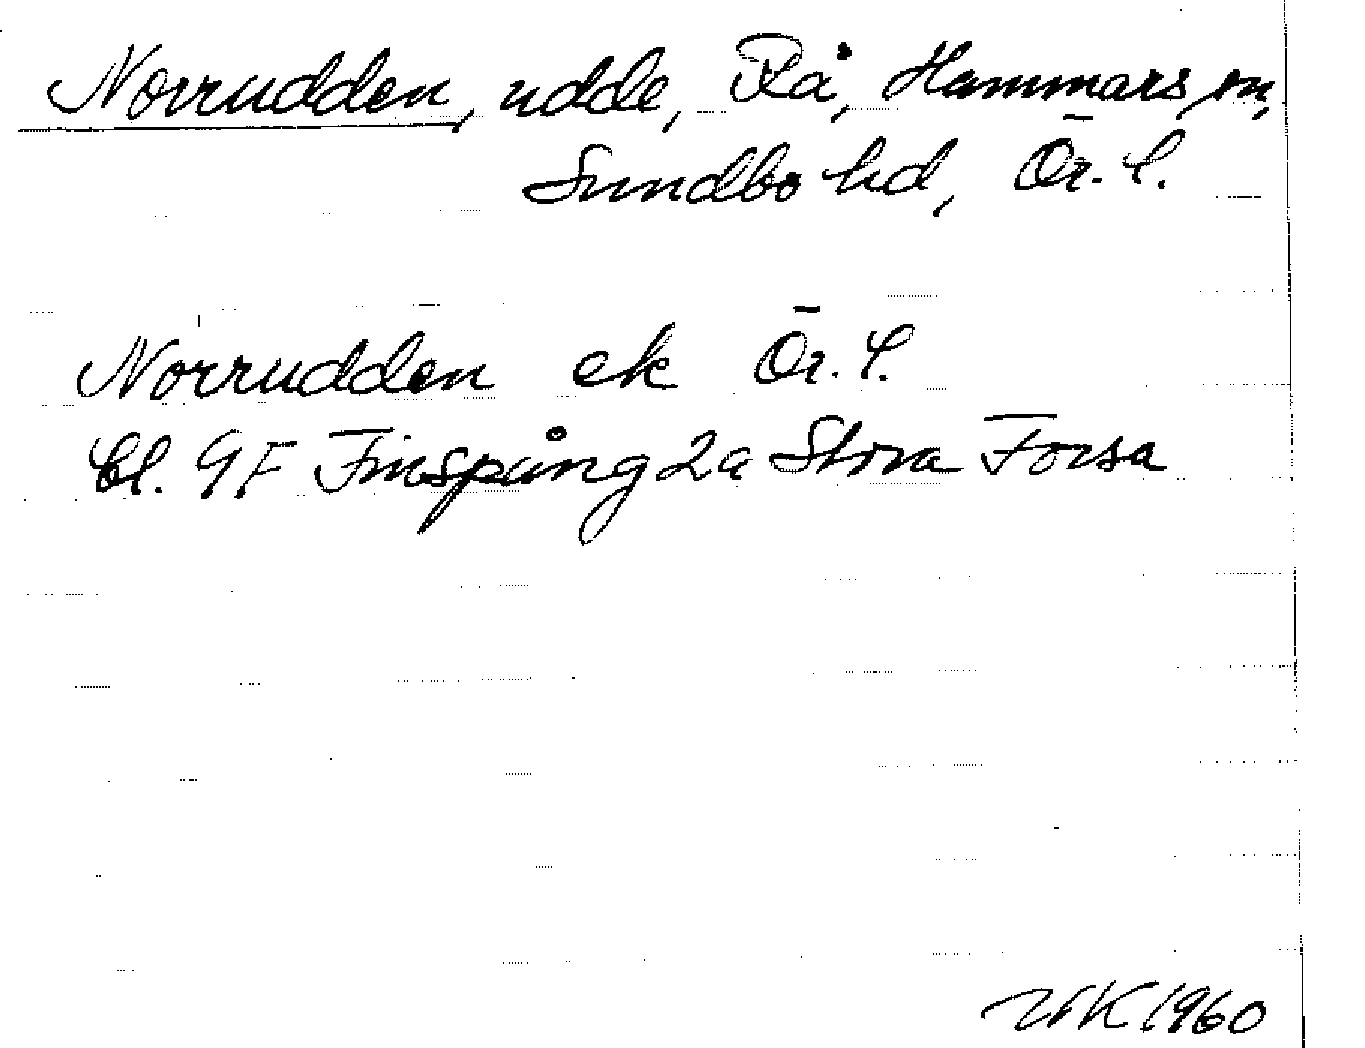 Norrudden, udde, Rå, Hammars sn,
Sundbo hd, Ör. l.
Norrudden ek Ör. l.
bl. 9F Finspång 2a Stora Forsa
1960